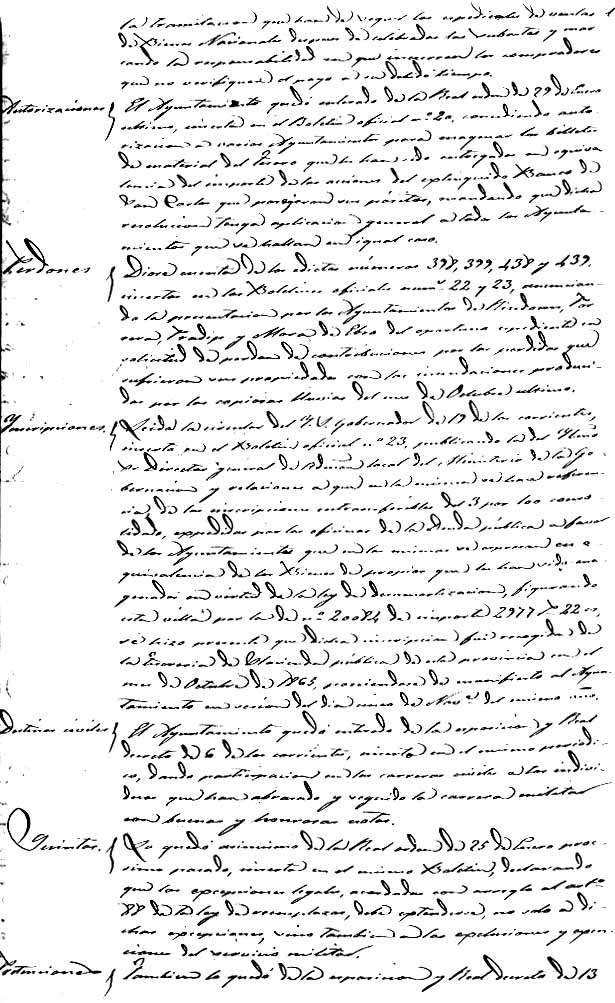 la tramitacion que han de seguir los espedientes de ventas
de Bienes Nacionales despues de celebradas las subastas y mar
cando la responsabilidad en que incurran los compradores
que no verifiquen el pago a su debido tiempo.
Autorizaciones } El Ayuntamiento quedó enterado de la Real orden de 29 de Enero
ultimo, inserta en el Boletin oficial nº 20, concediendo auto
rizacion a varios Ayuntamientos para enagenar los billetes
de material del Tesoro que les han sido entregados en equiva
lencia del importe de las acciones del extinguido Banco de
San Carlos que poseyeran sus pósitos, mandando que dicha
resolucion tenga aplicacion general a todos los Ayunta-
mientos que se hallan en igual caso.
Perdones } Diose cuenta de los edictos números 398, 399, 438 y 439,
insertos en los Boletines oficiales numº 22 y 23, anuncian-
do la presentacion por los Ayuntamientos de
y Mora de Ebro del oportuno espediente en
solicitud de perdon de contribuciones por las perdidas que
sufrieron sus propiedades con las inundaciones produci-
das por las copiosas lluvias del mes de Octubre ultimo.
Inscripciones. } Leida la circular del Y. S. Gobernador de 19 de los corrientes,
inserta en el Boletin oficial nº 23, publicando la del Yltmo
Sr Director general de Admon local del Ministerio de la Go-
bernacion y relaciones a que en la misma se hace referen-
cia, de las inscripciones intransferibles del 3 por 100 conso
lidado, expedidas por las oficinas de la deuda pública a favor
de los Ayuntamientos que en las mismas se expresan en e-
quivalencia de los Bienes de propios que les han sido ena-
genados en virtud de la ley de desamortizacion, figurando
esta villa por la de nº 20084 de importe 2977 22
se hizo presente que dicha inscripcion fue recogida de
la Tesoreria de Hacienda pública de esta provincia en el
mes de Octubre de 1865, poniendose de manifiesto al Ayun-
tamiento en sesion del dia cinco de Novᵉ del mismo año.
Destinos civiles } El Ayuntamiento quedó enterado de la exposicion y Real
decreto de 6 de los corrientes, inserto en el mismo periodi-
co, dando participacion en las carreras civiles a los indivi-
duos que han abrazado y seguido la carrera militar
con buenas y honrosas notas.
Quintas. } Lo quedó asimismo de la Real orden de 25 de Enero proc-
simo pasado, inserta en el mismo Boletin, declarando
que las excepciones legales, acordadas con arreglo al artº
88 de la ley de reemplazos, debe entenderse, no solo a di-
chas excepciones, sino tambien a las exclusiones y exen-
ciones del servicio militar.
} Tambien lo quedó de la exposicion y Real decreto de 13